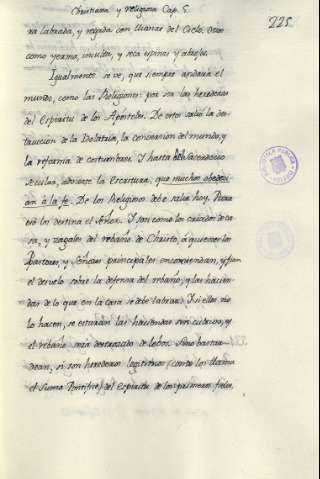 Christiana y religiosa Cap. 5.
225
ra labrada, y regada con lluvias del Cielo. O son
como yermo, inculta, y seca espinas y abrojos.
Igualmente se ve, que siempre andará el
mundo, como las Religiones: por ser las herederas
del Espiritu de los Apóstoles. De estos salió la des
truccion de la Idolatría, la conversion del mundo, y
la reforma de costumbres. Y hasta del Sacerdocio
secular, advierte la Escritura, que muchos obedecí
an á la fe. De los Religiosos debe salir hoy. Para
eso los destina el Señor. Y son como los criados de ca
sa, y zagales del rebaño de Christo, á quienes los
Pastores, y Señores principales encomiendan, y fian
el desvelo sobre la defensa del rebaño, y las hacien
das de lo que en la casa se debe labrar. Y si ellos no
lo hacen, se estarán las haciendas sin cultivo, y
el rebaño será destrozado de lobos. Sino bastar
dean, si son herederos legítimos (como los llama
el Sumo Pontífice) del Espíritu de los primeros fieles,